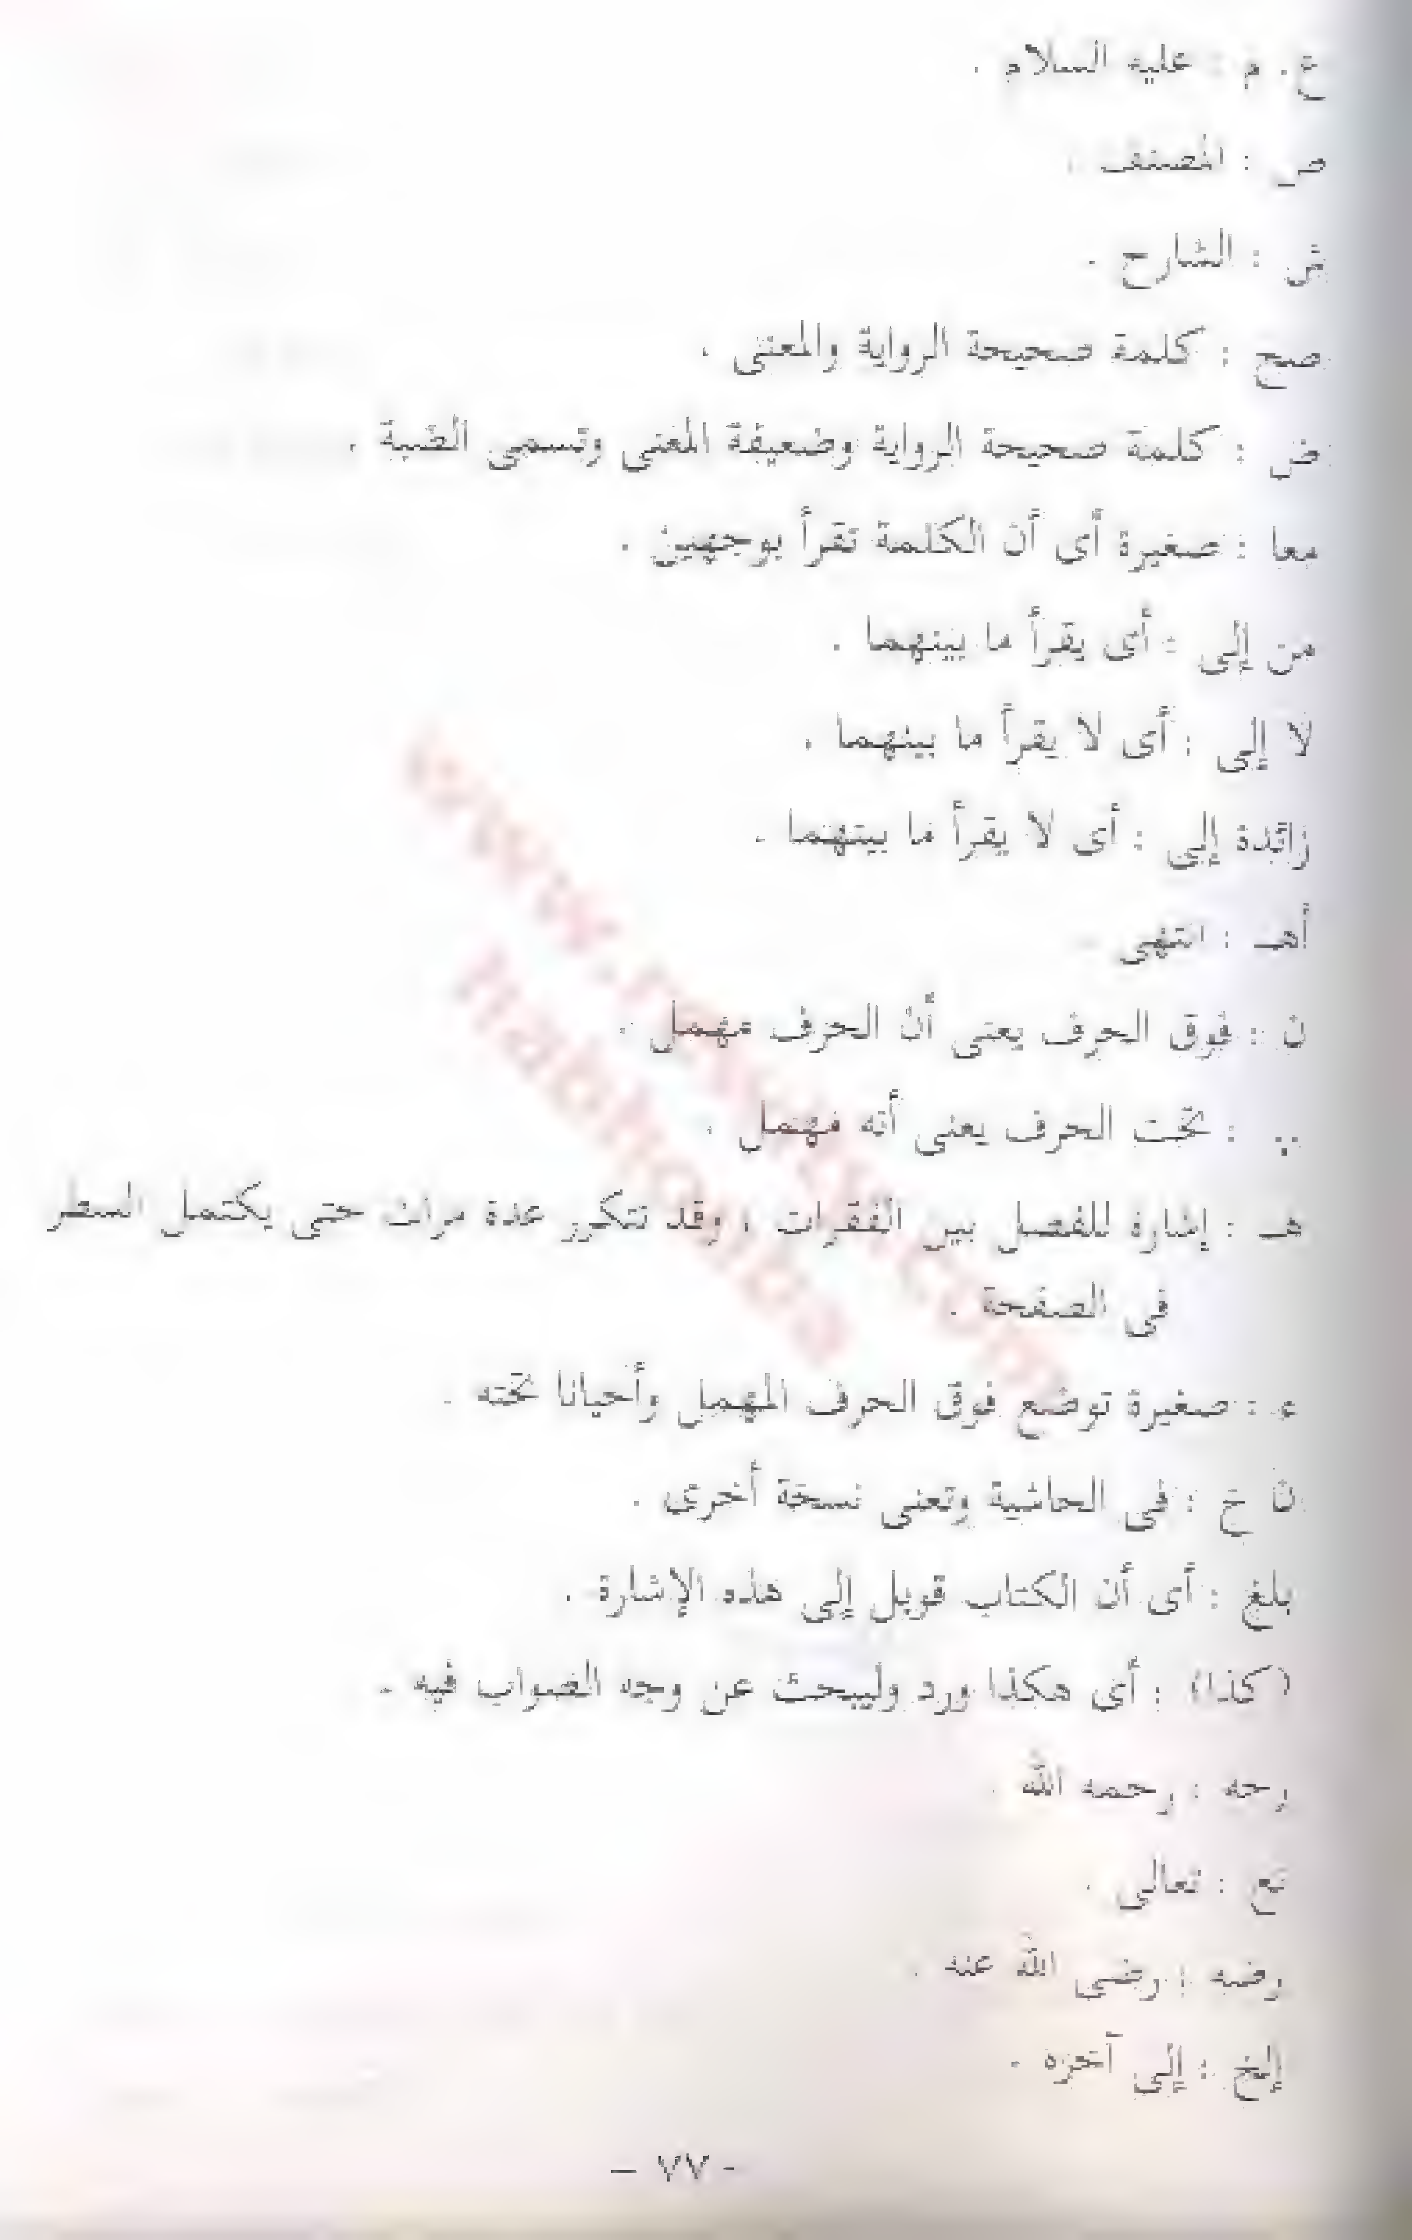 ع . م : عليه السلام .
ص : المصنف .
ش : الشارح .
صح : كلمة صحيحة الرواية والمعنى .
ض : كلمة صحيحة الرواية وضعيفة المعنى وتسمى الضبة .
معا : صغيرة أى أن الكلمة تقرأ بوجهين .
من إلى : أى يقرأ ما بينهما .
لا إلى : أى لا يقرأ ما بينهما .
زائدة إلى : أى لا يقرأ ما بينهما .
أهـ : انتهى .
ن : فوق الحرف يعنى أن الحرف مهمل .
.. : تحت الحرف يعنى أنه مهمل .
هـ : إشارة للفصل بين الفقرات ، وقد تتكرر عدة مرات حتى يكتمل السطر
فى الصفحة .
ء : صغيرة توضع فوق الحرف المهمل وأحيانا تحته .
ن خ : فى الحاشية وتعنى نسخة أخرى .
بلغ : أى أن الكتاب قوبل إلى هذه الإشارة .
(كذا) : أى هكذا ورد وليبحث عن وجه الصواب فيه .
رحه : رحمه الله .
تع : تعالى .
رضه : رضى الله عنه .
إلخ : إلى آخره .
- ٧٧ -